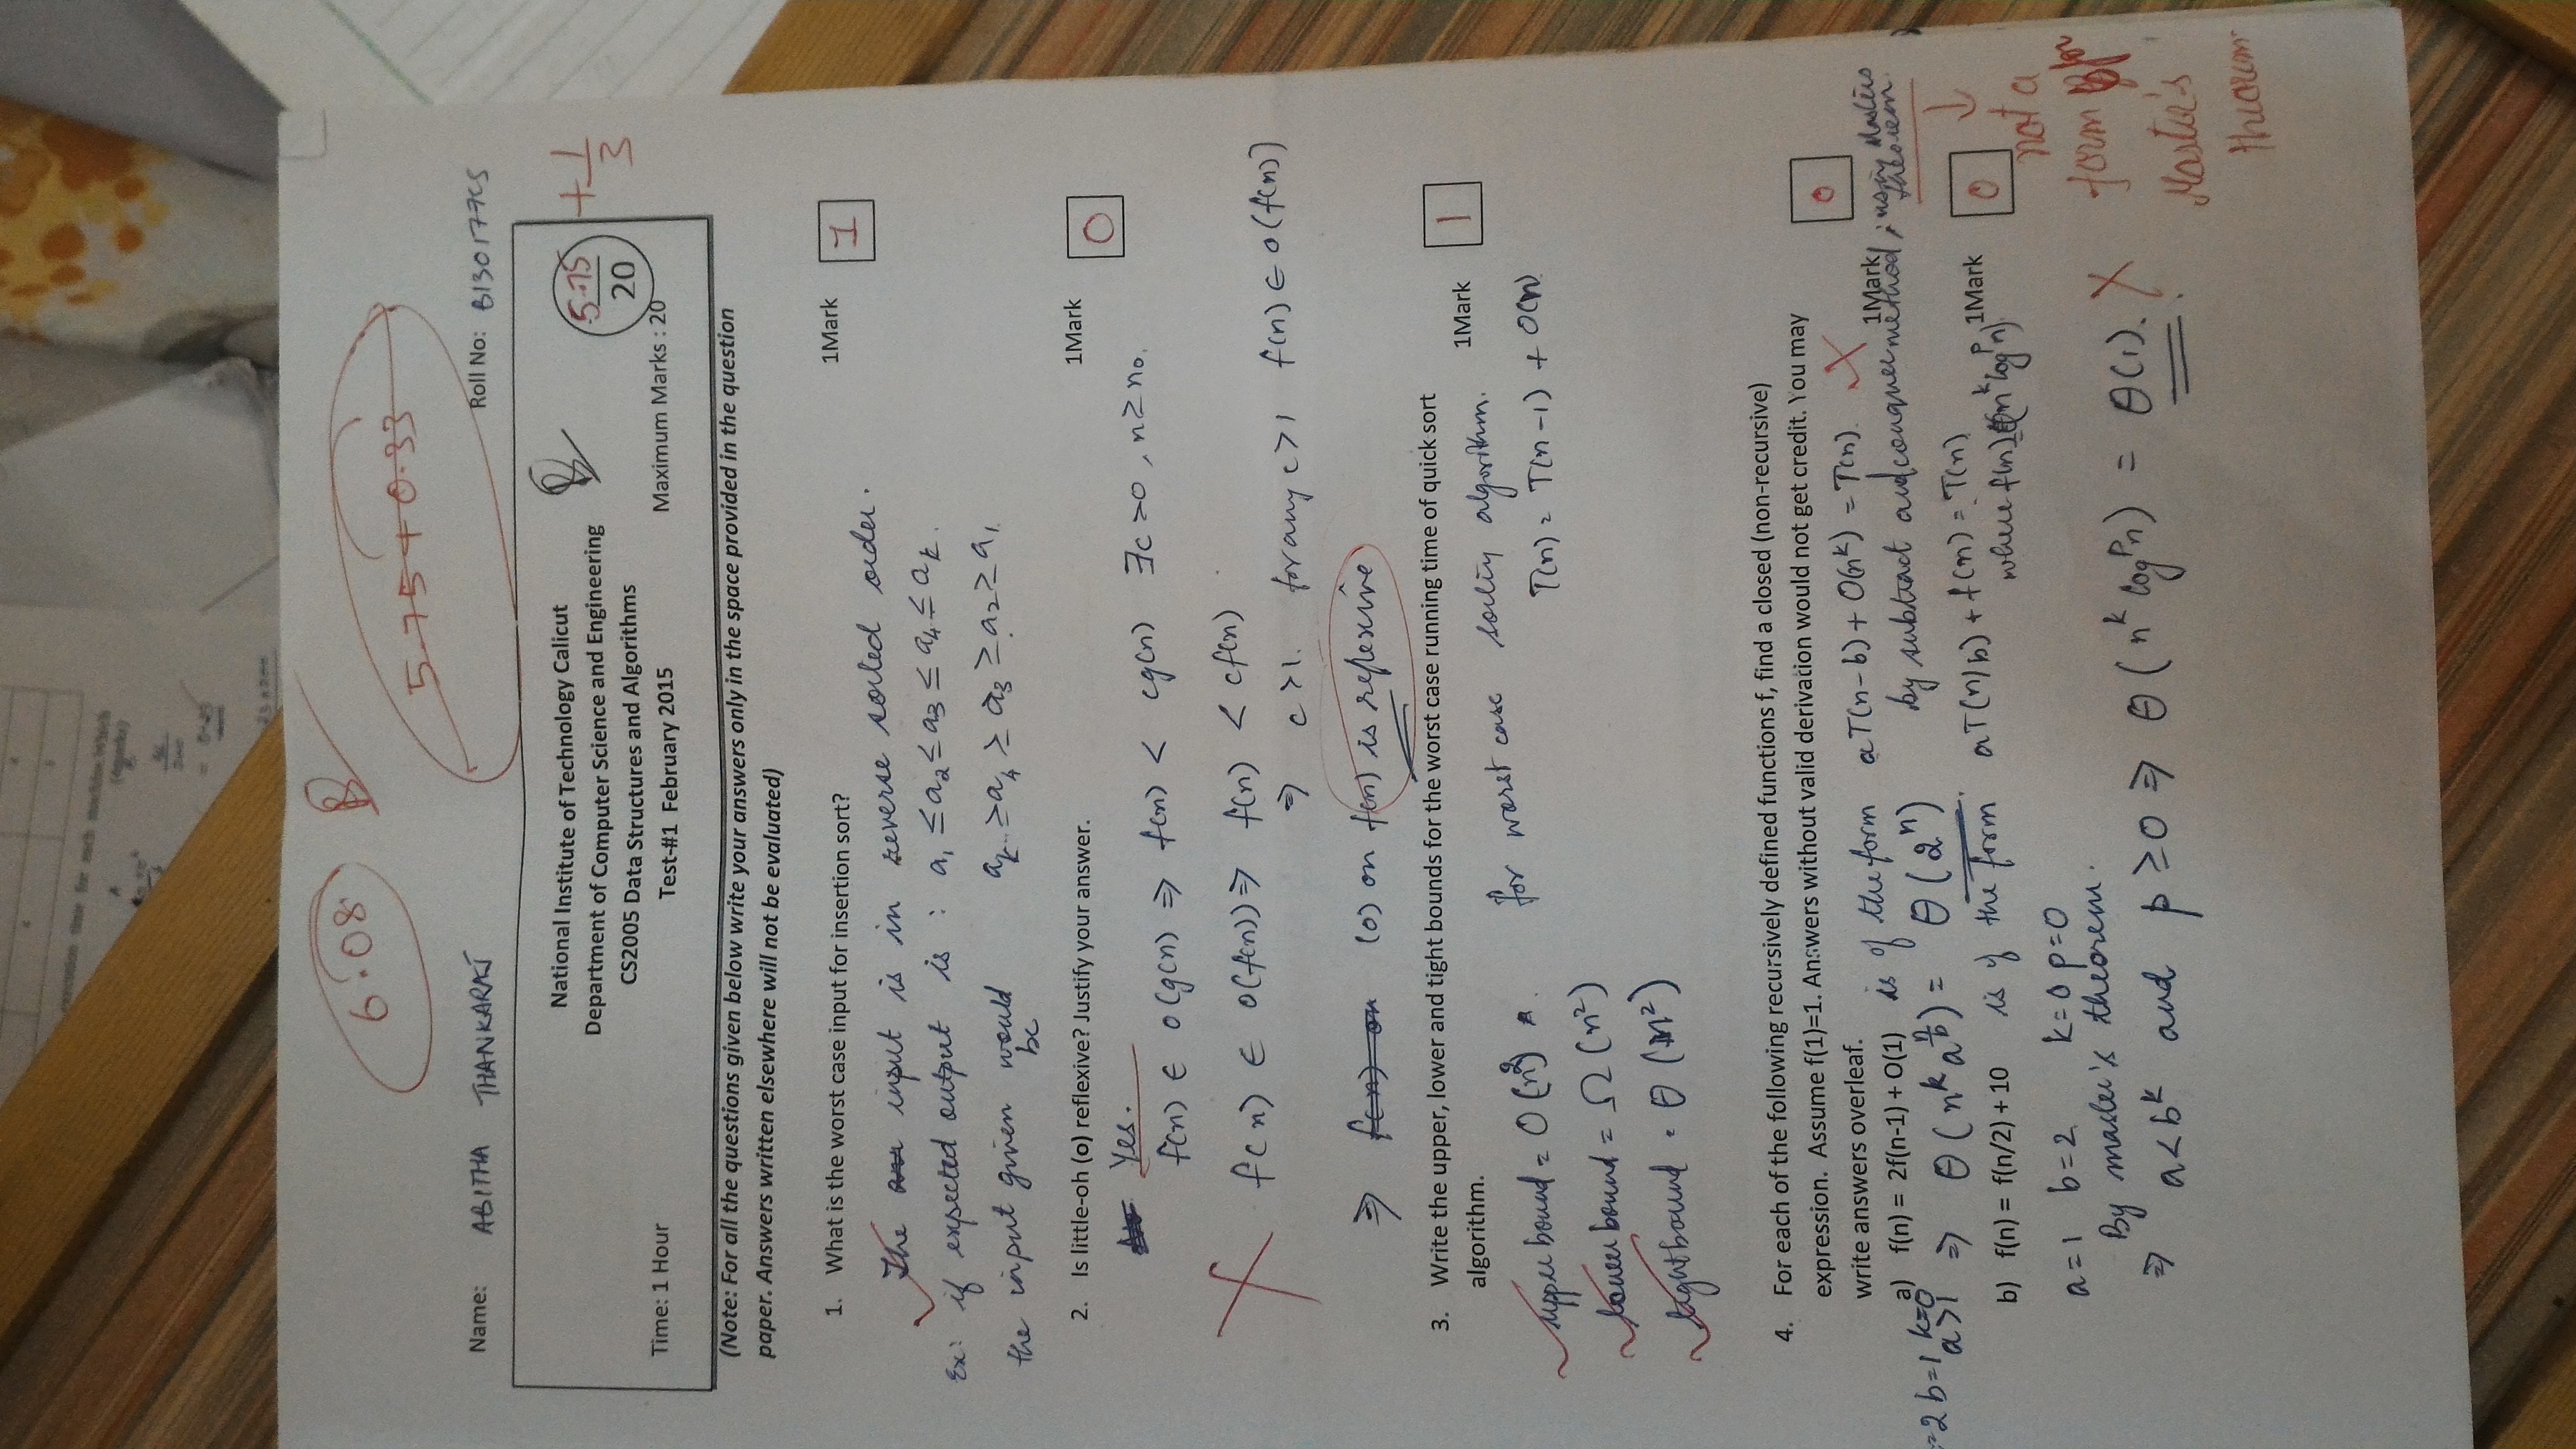 6.08
5.75 + 0.33
Name: ABITHA THANKARAJ Roll No: B130177CS
National Institute of Technology Calicut
Department of Computer Science and Engineering
CS2005 Data Structures and Algorithms
Test-#1 February 2015
5.75
20
+ 1/3
Time: 1 Hour Maximum Marks : 20
(Note: For all the questions given below write your answers only in the space provided in the question
paper. Answers written elsewhere will not be evaluated)
1. What is the worst case input for insertion sort? 1Mark 1
The input is in reverse sorted order.
Ex: if expected output is : a1 ≤ a2 ≤ a3 ≤ a4 ≤ ak.
the input given would be ak ≥ a4 ≥ a3 ≥ a2 ≥ a1
2. Is little-oh (o) reflexive? Justify your answer. 1Mark 0
Yes.
f(n) ∈ o(g(n)) ⇒ f(n) < cg(n) ∃c>0, n≥n0.
f(n) ∈ o(f(n)) ⇒ f(n) < cf(n)
⇒ c>1. for any c>1 f(n) ∈ o(f(n))
⇒ (o) on f(n) is reflexive
3. Write the upper, lower and tight bounds for the worst case running time of quick sort
algorithm. 1Mark 1
for worst case sorting algorithm.
upper bound = O(n²) T(n) = T(n-1) + O(n)
lower bound = Ω(n²)
tight bound = θ(n²)
4. For each of the following recursively defined functions f, find a closed (non-recursive)
expression. Assume f(1)=1. Answers without valid derivation would not get credit. You may
write answers overleaf.
a) f(n) = 2f(n-1) + O(1) is of the form aT(n-b) + O(n^k) = T(n). 1Mark 0
=2 b=1 k=0 a>1 ⇒ θ(n^k a^(n/b)) = θ(2^n) by subtract and conquer method; using Masters theorem.
b) f(n) = f(n/2) + 10 is of the form aT(n/b) + f(n) = T(n) 1Mark 0
where f(n) = θ(n^k log^p n)
a=1 b=2 k=0 p=0
By master's theorem.
⇒ a<b^k and p≥0 ⇒ θ(n^k log^p n) = θ(1).
not a
form for
Master's
theorem